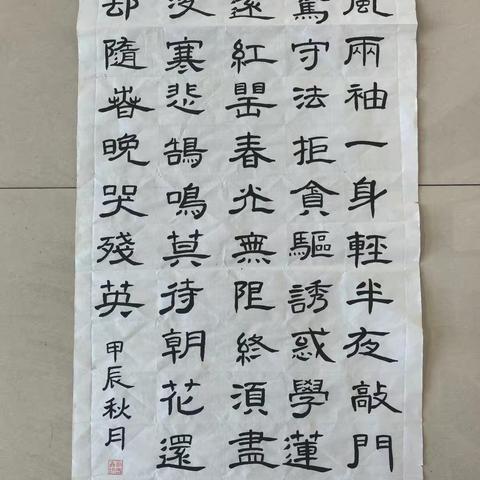 風兩袖一身輕半夜敲門
驚守法拒貪驅誘惑學蓮
遠紅罌春光無阻終湏盡
寒悲鵠鳴莫待朝花還
却隨春晚哭殘英
甲辰秋月